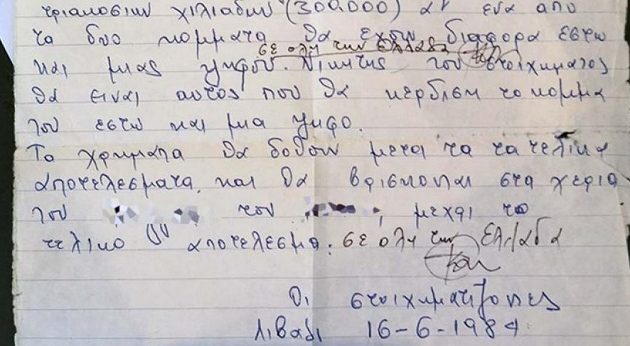 τριακοσιων χιλιαδων (300.000) αν ενα απο
τα δυο κομματα θα εχουν διαφορα εστω
σε ολη την Ελλαδα
και μιας ψηφου. Νικητης του στοιχηματος
θα ειναι αυτος που θα κερδιση το κομμα
του εστω και μια ψηφο.
Τα χρηματα θα δοθουν μετα τα τα τελικα
αποτελεσματα. και θα βρισκονται στα χερια
του του , μεχρι το
τελικο αποτελεσμα. σε ολη την Ελλαδα
Οι στοιχηματιζοντες
Λιβαδι 16-6-1984